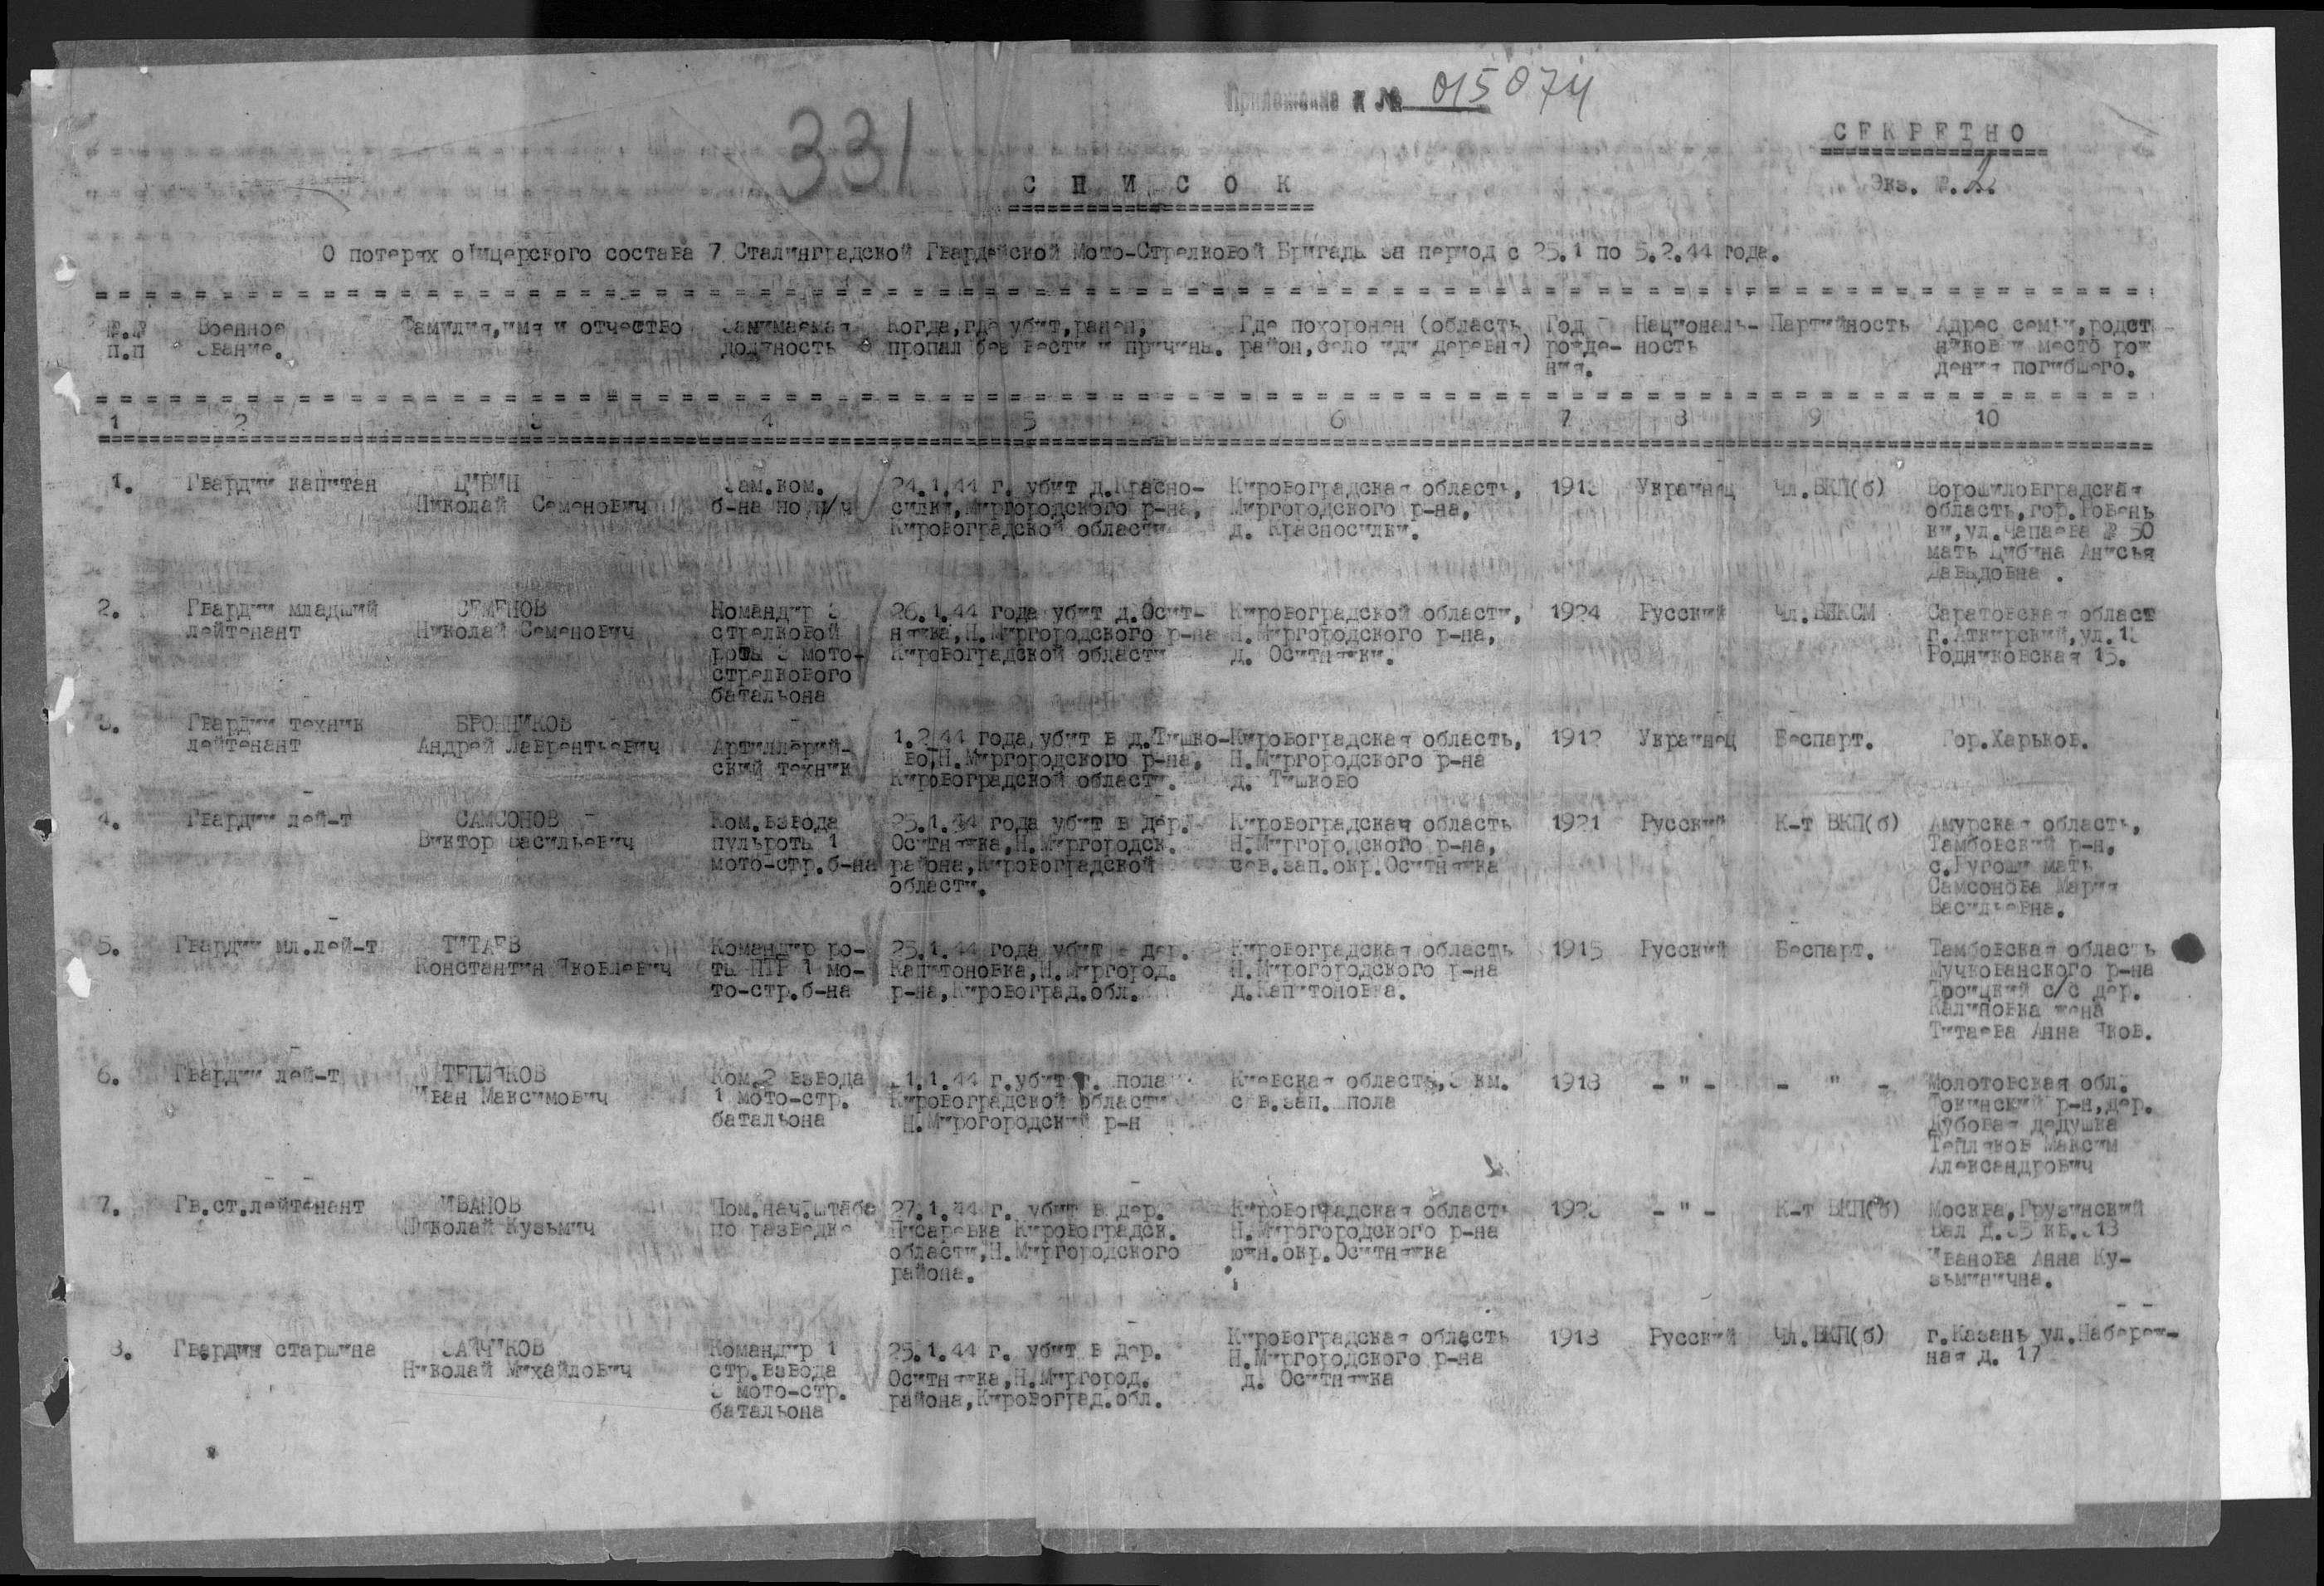 331
Приложение к № 015074
СЕКРЕТНО
Экз. №.2.
СПИСОК
О потерях офицерского состава 7 Сталинградской Гвардейской Мото-Стрелковой Бригады за период с 25.1 по 5.2.44 года.
№.№ Военное Фамилия,имя и отчество Занимаемая Когда,где убит,ранен, Где похоронен (область Год Националь- Партийность Адрес семьи,родст
п.п звание. должность пропал без вести и причины. район,село или деревня) рожде- ность ников и место рож
ния. дения погибшего.
1 2 3 4 5 6 7 8 9 10
1. Гвардии капитан ЦИБИН Зам.ком. 24.1.44 г. убит д.Красно- Кировоградская область, Украинец Чл.ВКП(б) Ворошиловградская
Николай Семенович б-на по п/ч силки,Миргородского р-на, Миргородского р-на, область,гор.Ровень
Кировоградской области д. Красносилки. ки,ул.Чапаева № 50
мать Цибина Анисья
Давыдовна .
2. Гвардии младший СЕМЕНОВ Командир 3 26.1.44 года убит д.Осит- Кировоградской области, 1924 Русский Чл.ВЛКСМ Саратовская област
лейтенант Николай Семенович стрелковой няжка,Н.Миргородского р-на Н.Миргородского р-на, г.Аткарский,ул.
роты 3 мото- Кировоградской области д. Оситняжки. Родниковская 15.
стрелкового
батальона
3. Гвардии техник БРОННИКОВ
лейтенант Андрей Лаврентьевич Артиллерий- 1.2.44 года убит в д.Тишко- Кировоградская область, 1912 Украинец Беспарт. Гор.Харьков.
ский техник во,Н.Миргородского р-на, Н.Миргородского р-на
Кировоградской области. д. Тишково
4. Гвардии лей-т САМСОНОВ Ком.взвода 25.1.44 года убит в дер. Кировоградская область 1921 Русский К-т ВКП(б) Амурская область,
Виктор Васильевич пульроты 1 Оситняжка,Н.Миргородск. Н.Миргородского р-на, Тамбовский р-н,
мото-стр.б-на района,Кировоградской сев.зап.окр.Оситняжка с. мать
области. Самсонова Мария
Васильевна.
5. Гвардии мл.лей-т ТИТАЕВ Командир ро- 25.1.44 года убит в дер. Кировоградская область 1915 Русский Беспарт. Тамбовская область
Константин Яковлевич ты ПТР 1 мо- Капитоновка,Н.Миргород. Н.Мирогородского р-на Мучкованского р-на
то-стр.б-на р-на,Кировоград.обл. д.Капитоновка. Троицкий с/с дер.
Калиновка жена
Титаева Анна Яков.
6. Гвардии лей-т ТЕПЛЯКОВ Ком.2 взвода 1.1.44 г.убит г. пола Киевская область,3 км. 1918 - " - - " - Молотовская обл.
Иван Максимович 1 мото-стр. Кировоградской области сев.зап. пола Токинский р-н,дер.
батальона Н.Мирогородский р-н Дубовая дедушка
Тепляков Максим
Александрович
7. Гв.ст.лейтенант ИВАНОВ Пом.нач.штаба 27.1.44 г. убит в дер. Кировоградская область - " - К-т ВКП(б) Москва,Грузинский
Николай Кузьмич по разведке Писаревка Кировоградск. Н.Мирогородского р-на Вал д.35 кв.313
области,Н.Миргородского южн.окр.Оситняжка Иванова Анна Ку-
района. зьминична.
8. Гвардии старшина ЗАЙЧИКОВ Командир 1 25.1.44 г. убит в дер. Кировоградская область 1918 Русский Чл.ВКП(б) г.Казань ул.Набереж-
Николай Михайлович стр.взвода Оситняжка,Н.Миргород. Н.Миргородского р-на ная д. 17
3 мото-стр. района,Кировоград.обл. д. Оситняжка
батальона